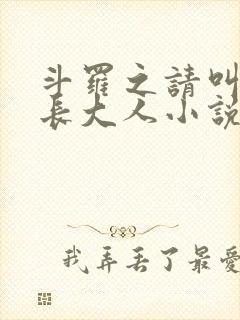 斗羅之請叫
長大人小說
我弄丟了最愛